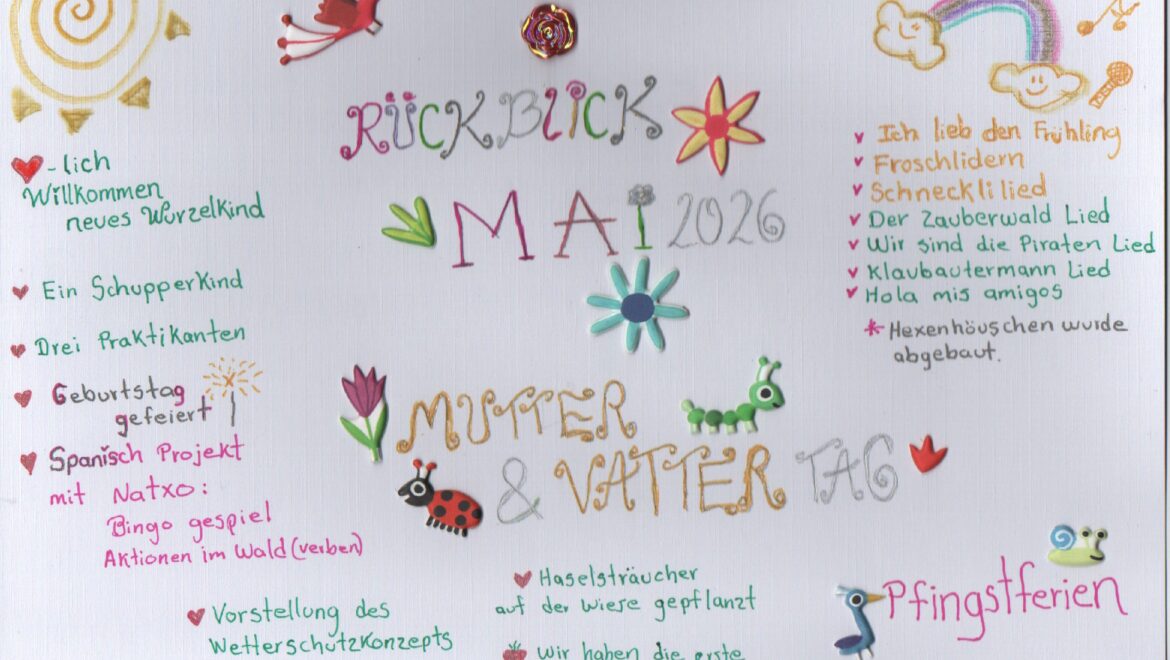 RÜCKBLICK
MAi 2026
MUTTER
& VATTER TAG
-lich
Willkommen
neues Wurzelkind
Ein Schupperkind
Drei Praktikanten
Geburtstag
gefeiert
Spanisch Projekt
mit Natxo:
Bingo gespiel
Aktionen im Wald (verben)
Vorstellung des
Wetterschutzkonzepts
Haselsträucher
auf der wiese gepflanzt
Wir haben die erste
Ich lieb den Frühling
Froschlidern
Schnecklilied
Der Zauberwald Lied
Wir sind die Piraten Lied
Klaubautermann Lied
Hola mis amigos
* Hexenhäuschen wurde
abgebaut.
Pfingstferien